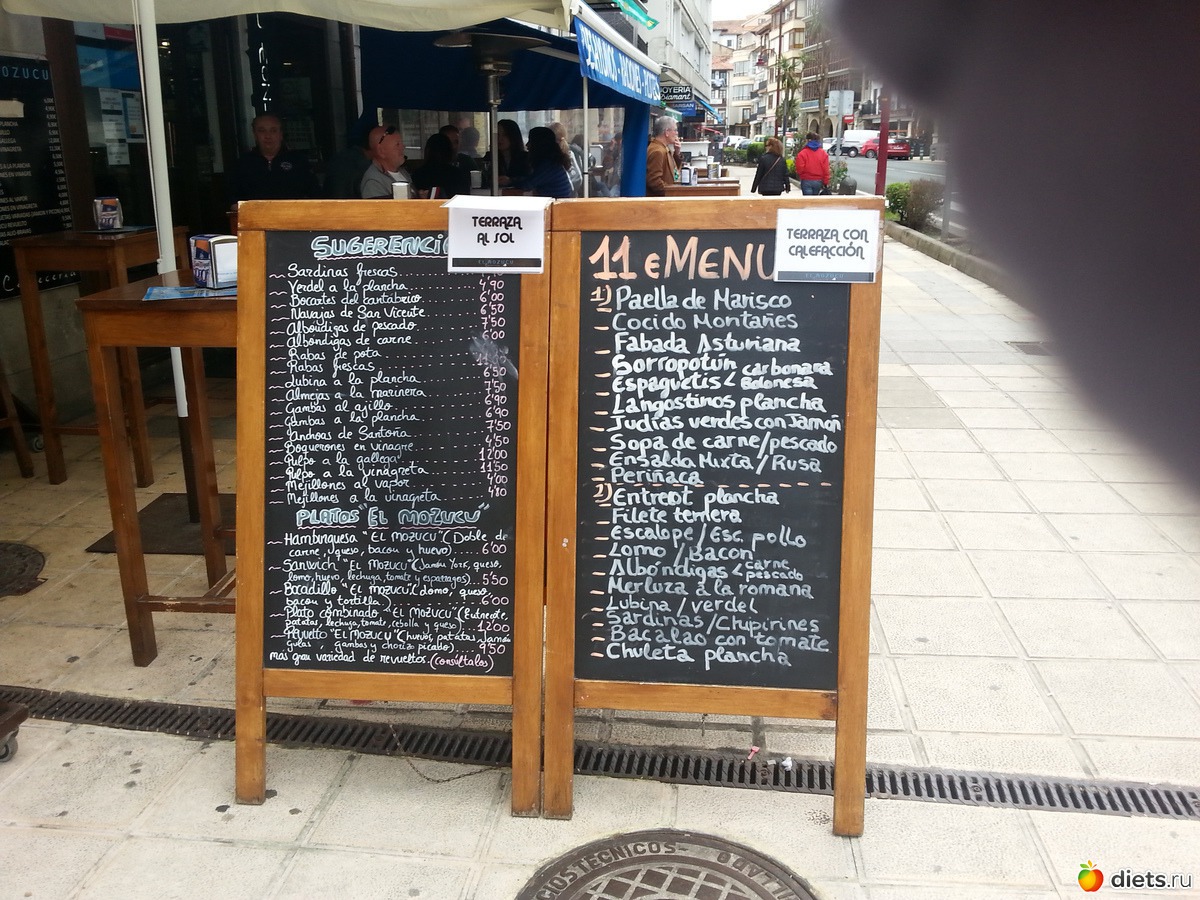 TERRAZA
AL SOL
EL MOZUCU
SUGERENCI
Sardinas frescas
Verdel a la plancha 4'90
Bocartes del Cantabrico 6'00
Navajas de San Vicente 6'50
Albondigas de pescado 7'50
Albondigas de carne 6'00
Rabas de pota
Rabas frescas
Lubina a la plancha 6'50
Almejas a la marinera 7'50
Gambas al ajillo 6'90
Gambas a la plancha 6'90
Anchoas de Santoña 7'50
Boquerones en vinagre 4'50
Pulpo a la gallega 12'00
Pulpo a la vinagreta 11'50
Mejillones al vapor 4'00
Mejillones a la vinagreta 4'80
PLATOS "EL MOZUCU"
- Hamburguesa "EL MOZUCU" (Doble de
carne, queso, bacon y huevo) 6'00
- Sanwich "EL MOZUCU" (Jamón York, queso,
lomo, huevo, lechuga, tomate y esparragos) 5'50
- Bocadillo "EL MOZUCU" (Lomo, queso,
bacon y tortilla) 6'00
- Plato combinado "EL MOZUCU" (Entrecote,
patatas, lechuga, tomate, cebolla y queso) 12'00
- Revuelto "EL MOZUCU" (huevos, patatas, jamón
gulas, gambas y chorizo picado) 9'50
mas gran variedad de revueltos (consúltalas)
TERRAZA CON
CALEFACCIÓN
EL MOZUCU
11 € MENU
1) Paella de Marisco
- Cocido Montañes
- Fabada Asturiana
- Sorropotún
- Espaguetis < carbonara
Bolonesa
- Langostinos plancha
- Judías verdes con Jamón
- Sopa de carne/pescado
- Ensalda Mixta / Rusa
- Periñaca
2) Entrecot plancha
- Filete ternera
- Escalope / Esc. pollo
- Lomo / Bacon
- Albondigas < carne
pescado
- Merluza a la romana
- Lubina / verdel
- Sardinas / Chipirines
- Bacalao con tomate
- Chuleta plancha
diets.ru